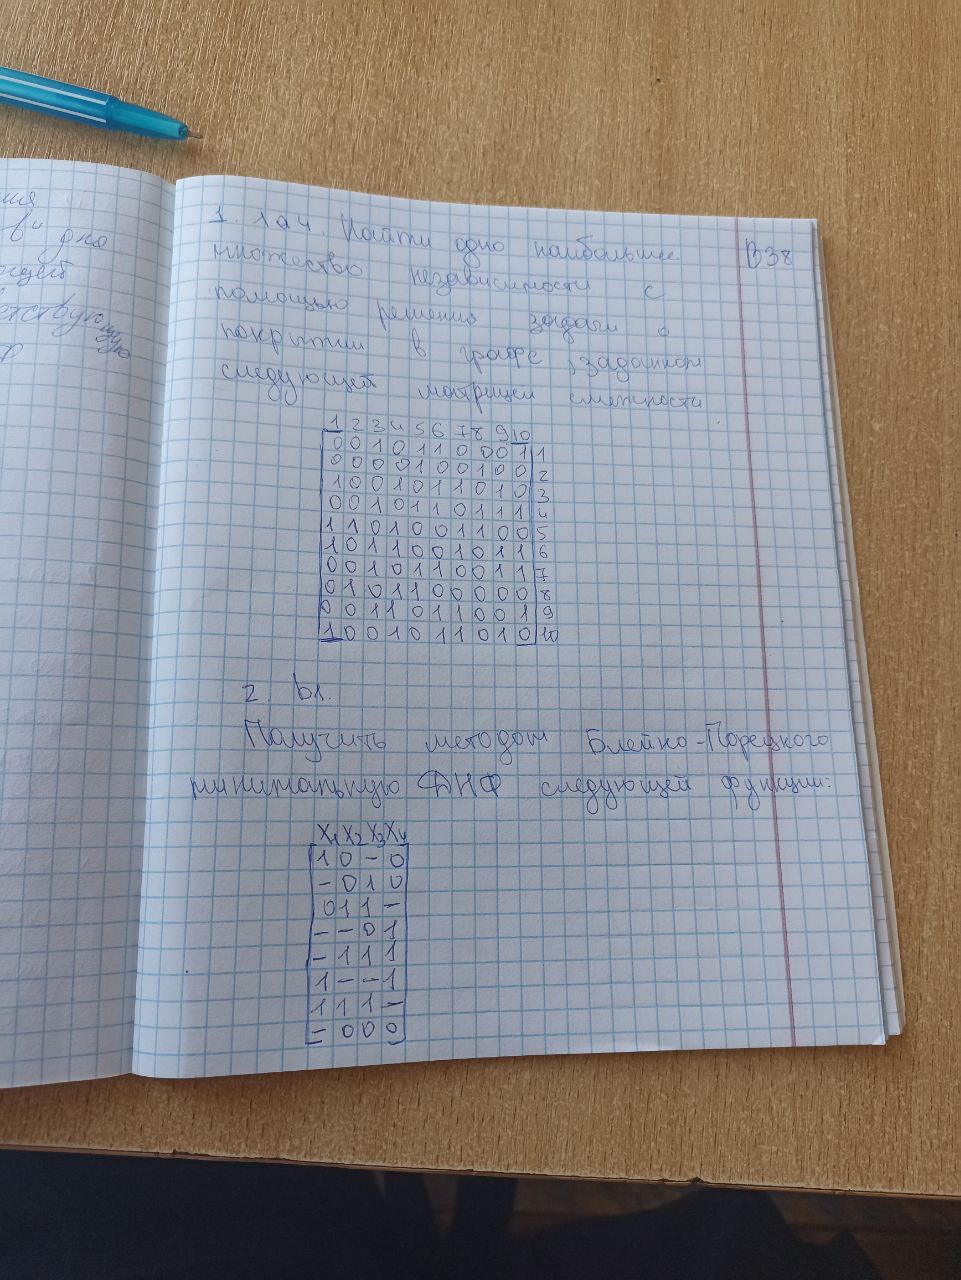 ния
в" дно
ующей
1. 1a4. Найти одно наибольшее
множество независимости с
помощью решения задачи о
покрытии в графе, заданном
следующей матрицей смежности
В38
1 2 3 4 5 6 7 8 9 10
0 0 1 0 1 1 0 0 0 1 1
0 0 0 0 1 0 0 1 0 0 2
1 0 0 1 0 1 1 0 1 0 3
0 0 1 0 1 1 0 1 1 1 4
1 1 0 1 0 0 1 1 0 0 5
1 0 1 1 0 0 1 0 1 1 6
0 0 1 0 1 1 0 0 1 1 7
0 1 0 1 1 0 0 0 0 0 8
0 0 1 1 0 1 1 0 0 1 9
1 0 0 1 0 1 1 0 1 0 10
2. b1.
Получить методом Блейка-Порецкого
минимальную ДНФ следующей функции:
X1 X2 X3 X4
1 0 - 0
- 0 1 0
0 1 1 -
- - 0 1
- 1 1 1
1 - - 1
1 1 1 -
- 0 0 0